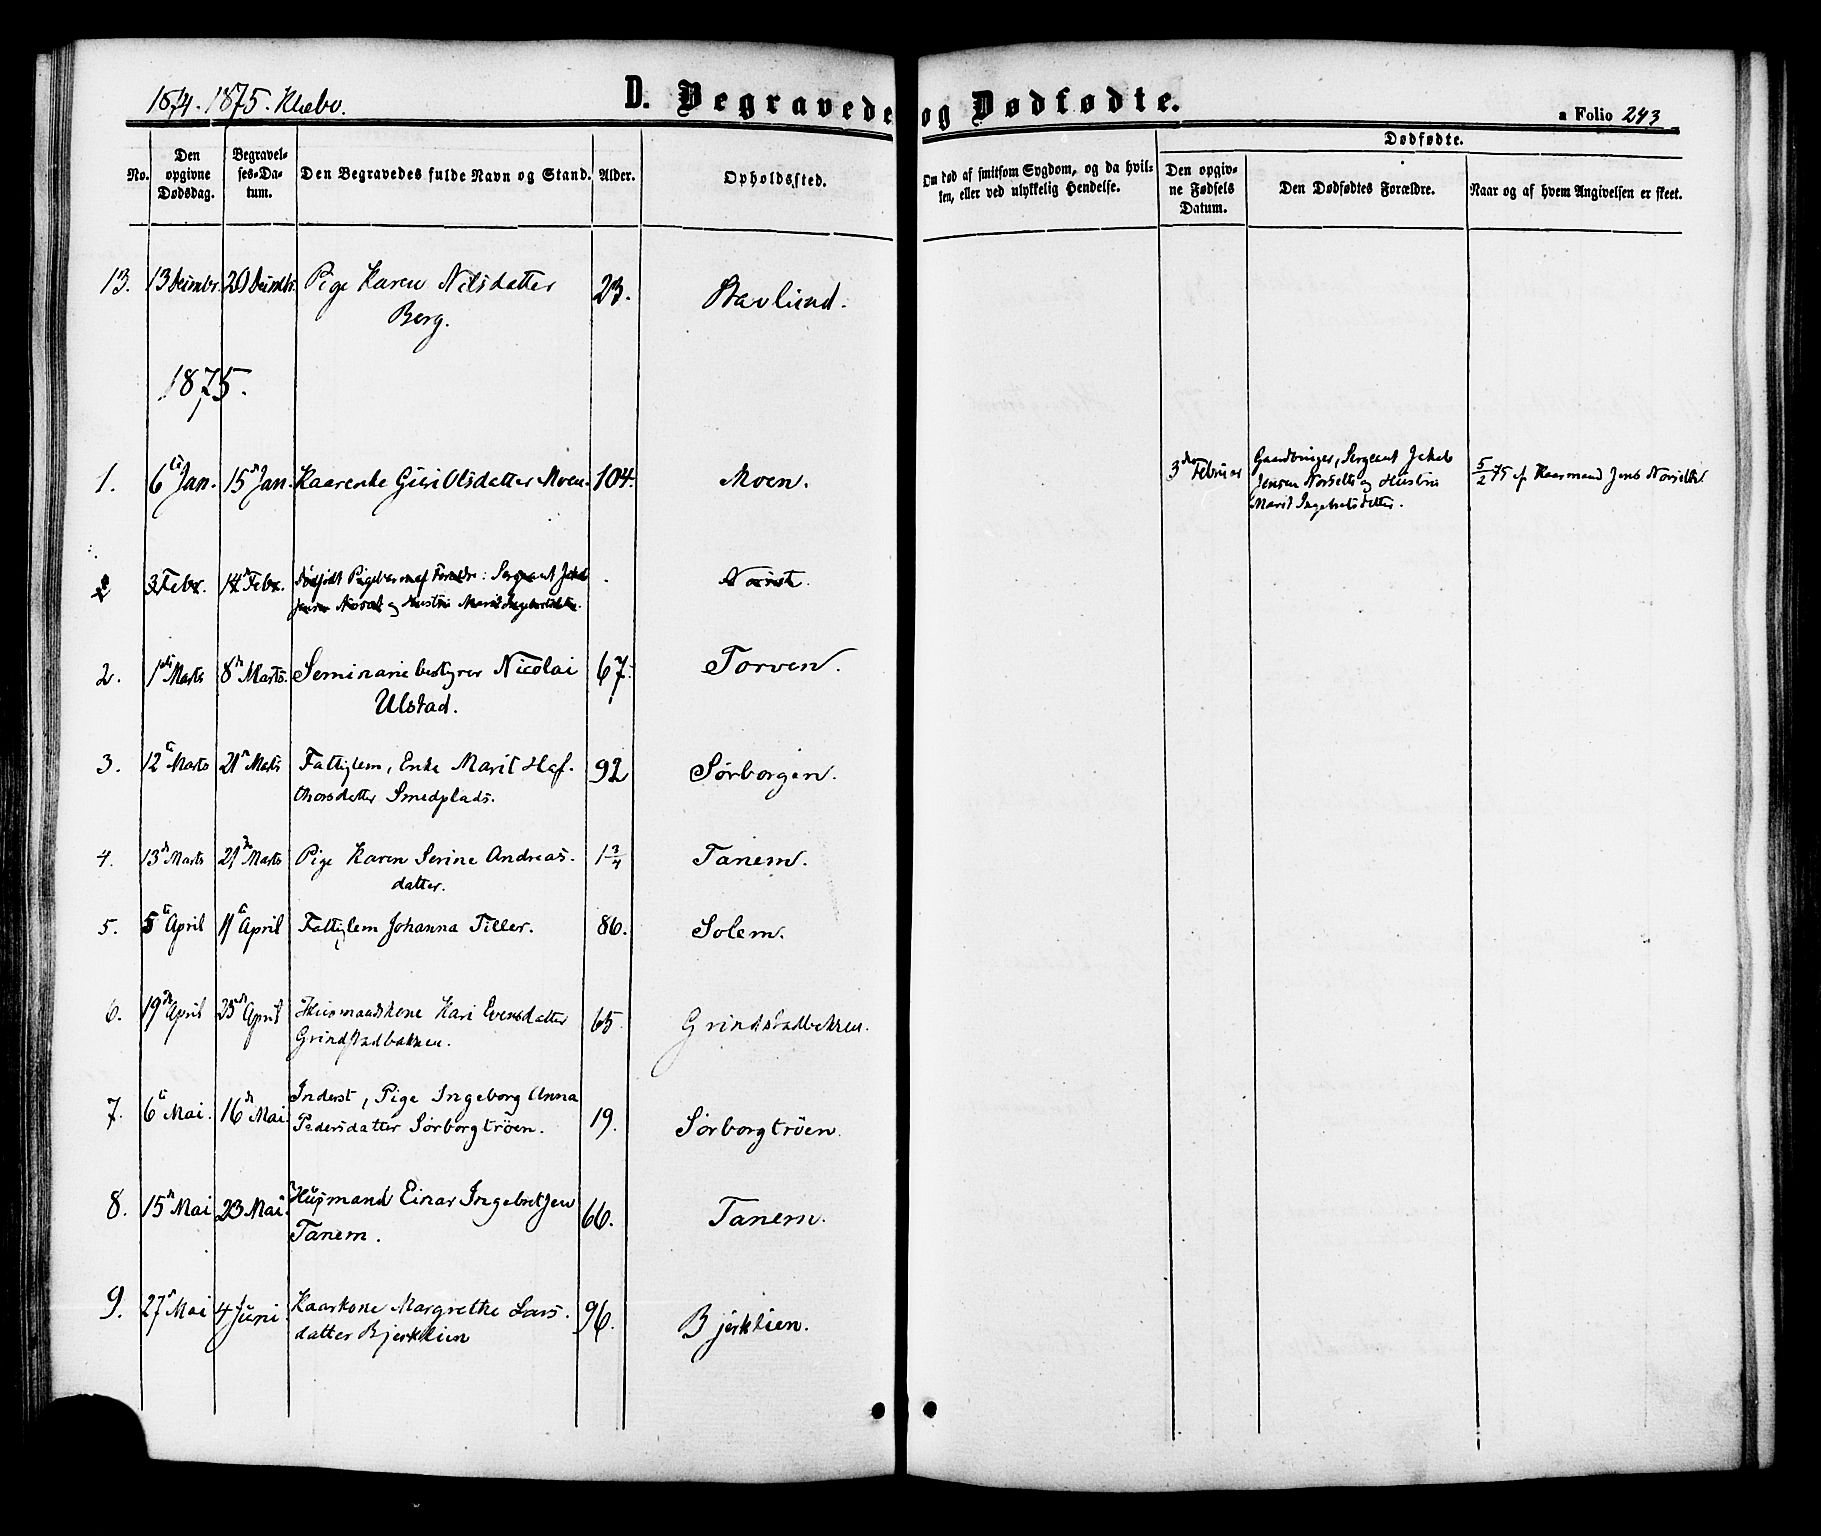 1874. 1875. Klæbo.
D. Begravede og Dødfødte.
a Folio 243
No.
Den opgivne Dødsdag.
Begravelses-Datum.
Den Begravedes fulde Navn og Stand.
Alder.
Opholdssted.
Om død af smitsom Sygdom, og da hvilken, eller ved ulykkelig Hendelse.
Dødfødte.
Den opgivne Fødsels Datum.
Den Dødfødtes Forældre.
Naar og af hvem Angivelsen er skeet.
13. 13 Decembr. 20 Decembr. Pige Karen Nilsdatter 23.
Berg.
1875.
1. 6te Jan. 15de Jan. Kaarenke Guri Olsdatter Moen. 104. Moen.
3die Februar Gaardbruger, Sergeant Jakob
Jensen Norseth og Hustru
Marit Ingebretsdatter.
5/2 75 af Kaarmand Jens Norseth.
2 3 Febr. 14de Febr. Dødfødt Pigebarn af Forældre: Sergeant Jakob
Jensen Norseth og Hustru Marit Ingebretsdatter.
2. 1ste Marts 8de Marts. Seminariebestyrer Nicolai 67. Torven.
Ulstad.
3. 12te Marts 21de Marts Fattiglem, Enke Marit Haf- 92 Sørborgen.
thorsdatter Smedplads.
4. 13de Marts 21de Marts Pige Karen Serine Andreas- 1 3/4 Tanem.
datter.
5. 5te April 11te April Fattiglem Johanna Tiller. 86. Solem.
6. 19de April 25de April Husmandskone Kari Evensdatter 65. Grindstadbakken.
Grindstadbakken.
7. 6te Mai. 16de Mai. Inderst, Pige Ingeborg Anna 19. Sørborgtrøen.
Pedersdatter Sørborgtrøen.
8. 15de Mai 23 Mai. Husmand Einar Ingebretsen 66. Tanem.
Tanem.
9. 27de Mai 4de Juni. Kaarkone Margrethe Lars- 96. Bjerklien.
datter Bjerklien